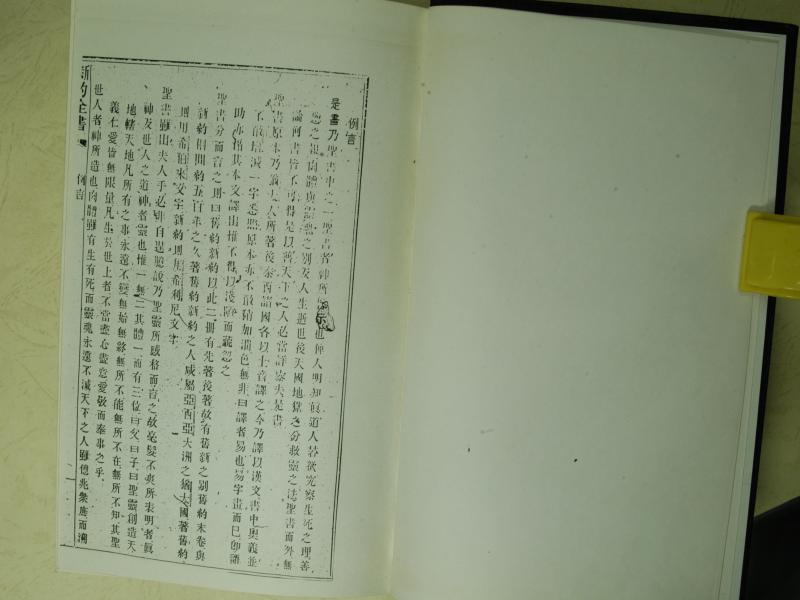 例言
是書乃聖書中之一聖書者神所也俾人明知眞道人若欲究察生死之理善
惡之報肉體與靈魂之別及人生逝世後天國地獄之分救靈之法聖書而外無
論何書皆不可得是以普天下之人必當詳察夫是書
聖書原本乃猶太人所著後泰西諸國各以土音譯之今乃譯以漢文書中奧義並
不敢增減一字悉照原本亦不敢稍加潤色無非曰譯者易也易字畫而已卽諸
助亦沿其本文譯出惟不得以淺陋而藐忽之
聖書分而言之則曰舊約新約以此二冊有先著後著故有舊新之別舊約末卷與
新約相間約五百年之久著舊約新約之人咸屬亞西亞大洲之猶太國著舊約
則用希伯來文字新約則用希利尼文字
聖書雖出夫人手必非自逞臆說乃聖靈所感格而言之故毫髮不爽所表明者眞
神及世人之道神者靈也惟一無二其體一而有三位曰父曰子曰聖靈創造天
地轄天地凡所有之事永遠不變無始無終無所不能無所不在無所不知其聖
義仁愛皆無限量凡生於世上者不當盡心盡意愛敬而奉事之乎
世人者神所造也肉體雖有生有死而靈魂永遠不滅天下之人雖億兆衆庶而溯
新約全書
例言